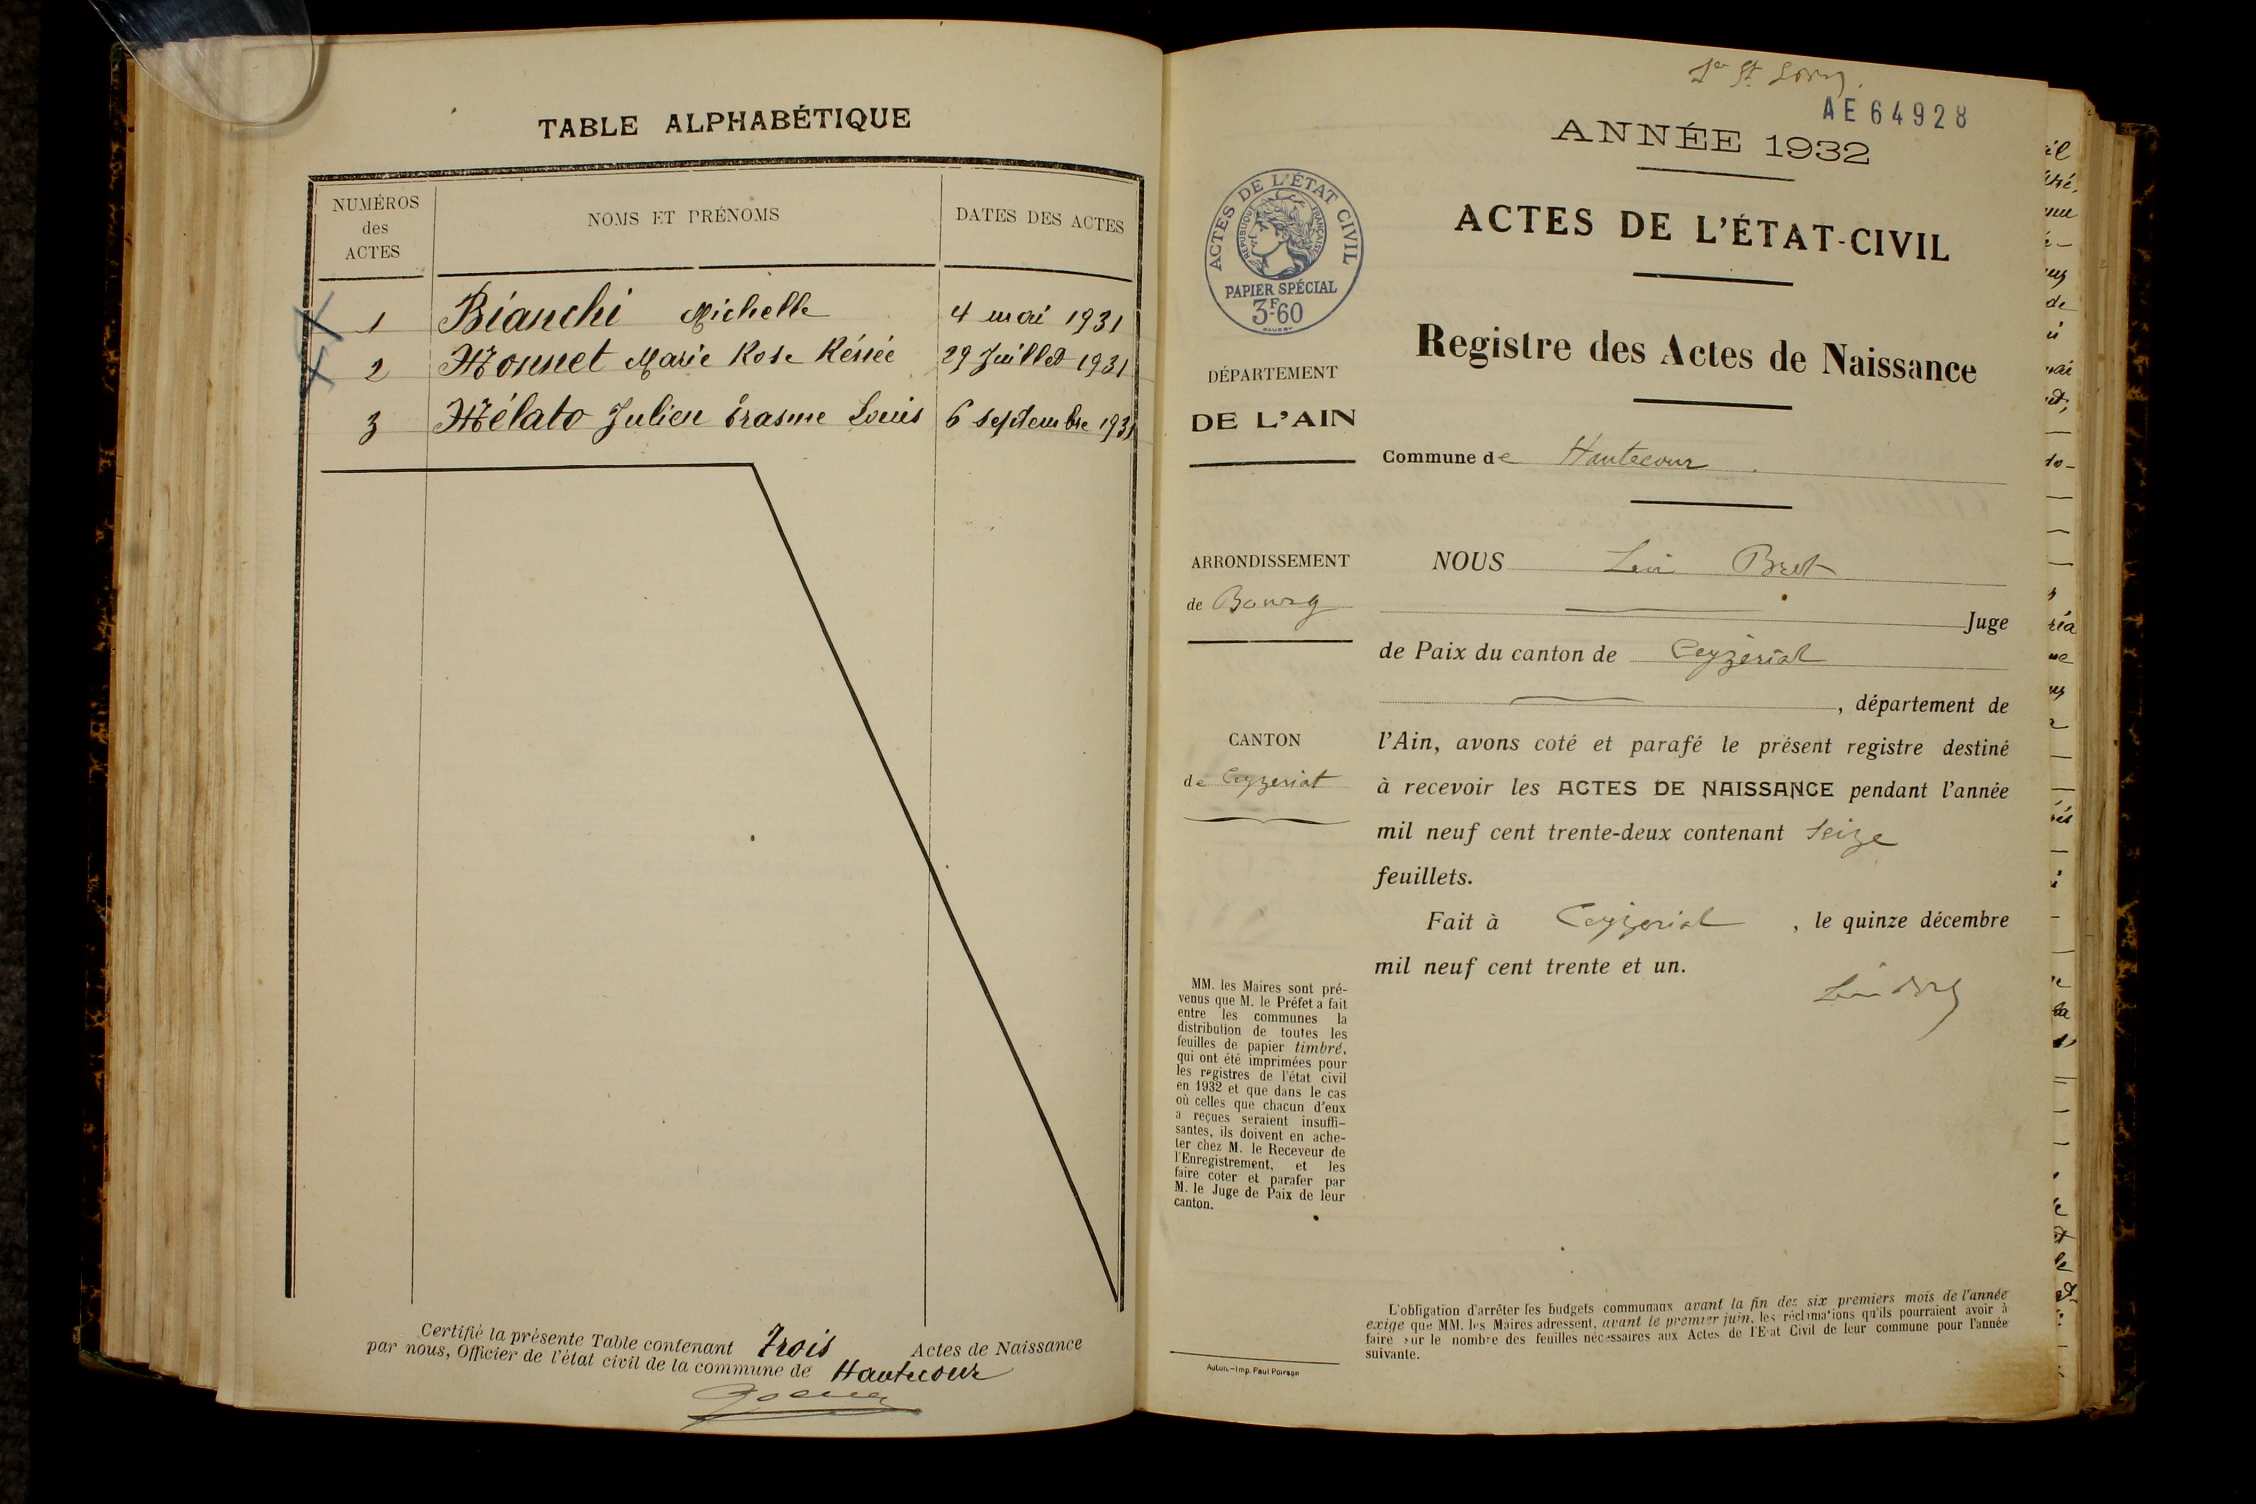 TABLE ALPHABÉTIQUE
NUMÉROS
des
ACTES
NOMS ET PRÉNOMS
DATES DES ACTES
1 Bianchi Michelle 4 mai 1931
2 Monnet Marie Rose Rénée 29 Juillet 1931
3 Mélato Julien Érasme Louis 6 Septembre 1931
Certifié la présente Table contenant Trois Actes de Naissance
par nous, Officier de l'état civil de la commune de Hautecour
AE 64928
ANNÉE 1932
ACTES DE L'ÉTAT CIVIL
RÉPUBLIQUE FRANÇAISE
PAPIER SPÉCIAL
3F.60
ACTES DE L'ÉTAT-CIVIL
Registre des Actes de Naissance
DÉPARTEMENT
DE L'AIN
Commune de Hautecour
ARRONDISSEMENT
de Bourg
CANTON
de Ceyzeriat
NOUS Léon Bret
Juge
de Paix du canton de Ceyzériat
, département de
l'Ain, avons coté et parafé le présent registre destiné
à recevoir les ACTES DE NAISSANCE pendant l'année
mil neuf cent trente-deux contenant Seize
feuillets.
Fait à Ceyzeriat , le quinze décembre
mil neuf cent trente et un.
MM. les Maires sont pré-
venus que M. le Préfet a fait
entre les communes la
distribution de toutes les
feuilles de papier timbré,
qui ont été imprimées pour
les registres de l'état civil
en 1932 et que dans le cas
où celles que chacun d'eux
a reçues seraient insuffi-
santes, ils doivent en ache-
ter chez M. le Receveur de
l'Enregistrement, et les
faire coter et parafer par
M. le Juge de Paix de leur
canton.
L'obligation d'arrêter les budgets communaux avant la fin des six premiers mois de l'année
exige que MM. les Maires adressent, avant le premier juin, les réclamations qu'ils pourraient avoir à
faire sur le nombre des feuilles nécessaires aux Actes de l'Etat Civil de leur commune pour l'année
suivante.
Autun.—Imp. Paul Poirson